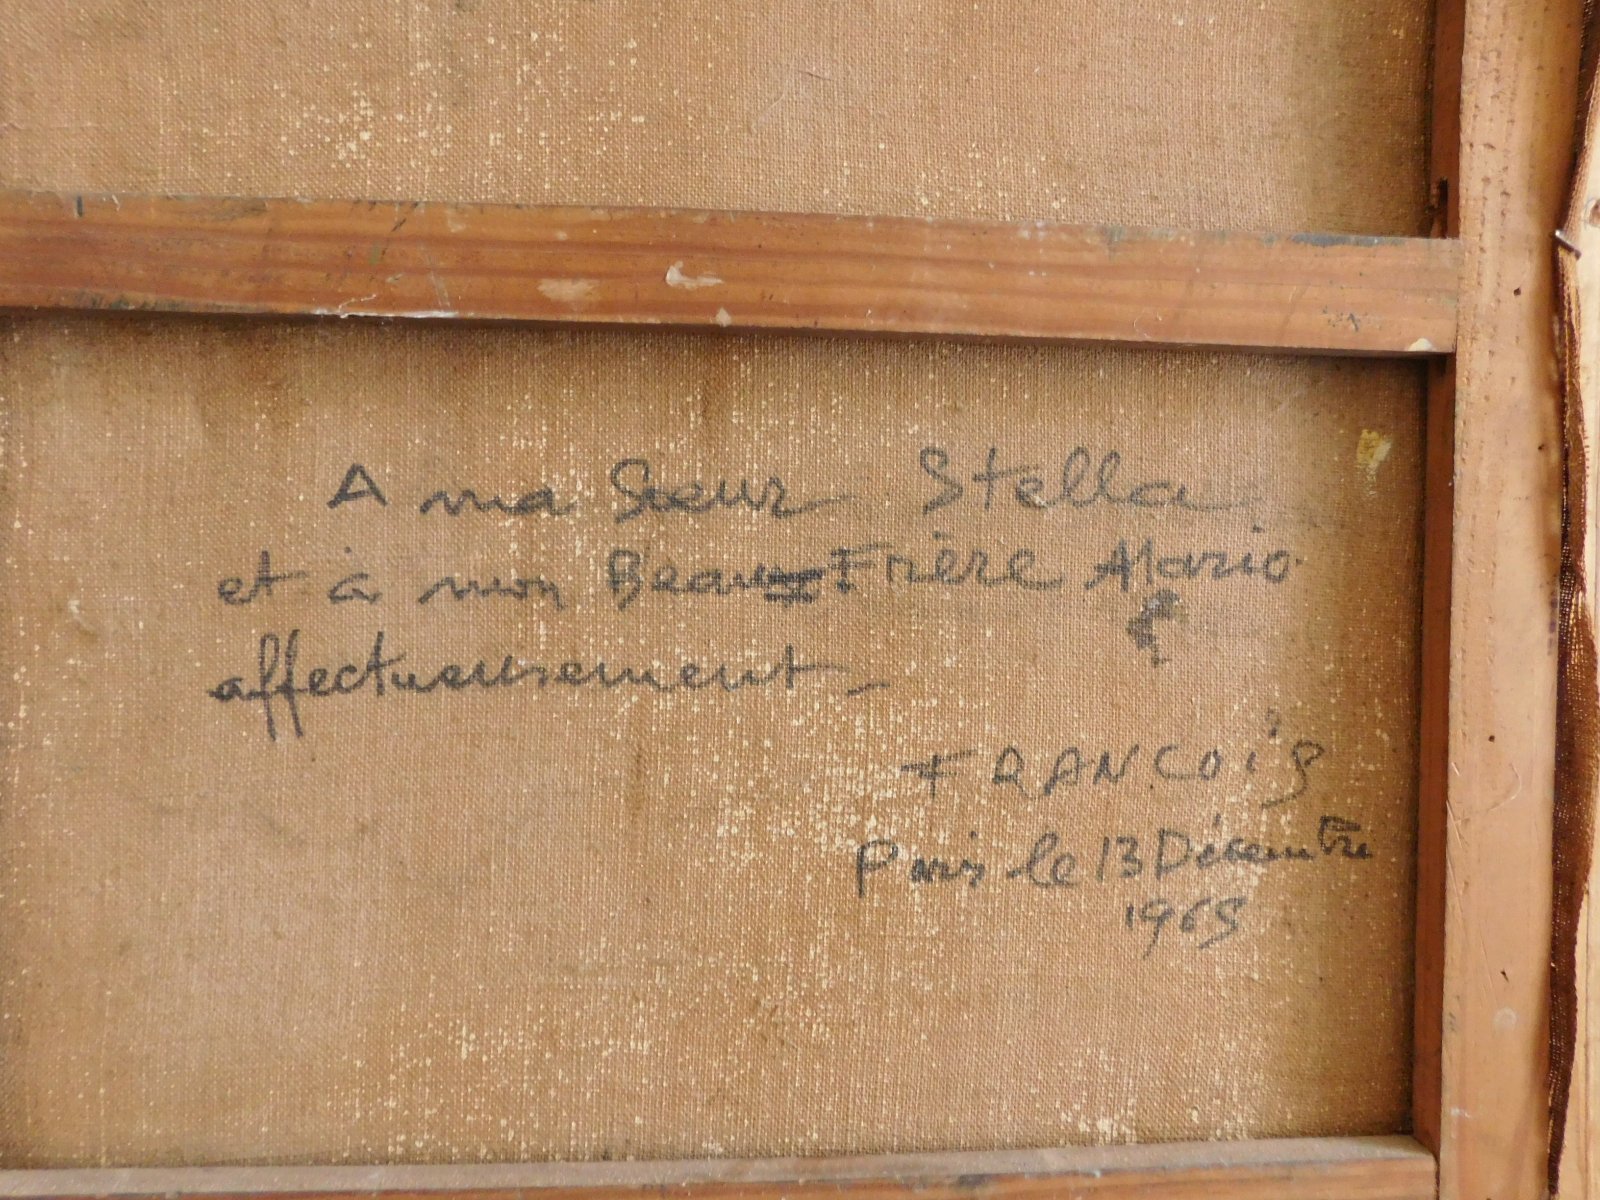 A ma Sœur Stella
et à mon Beau Frère Mario
affectueusement _
FRANCOIS
Paris le 13 Décembre
1965